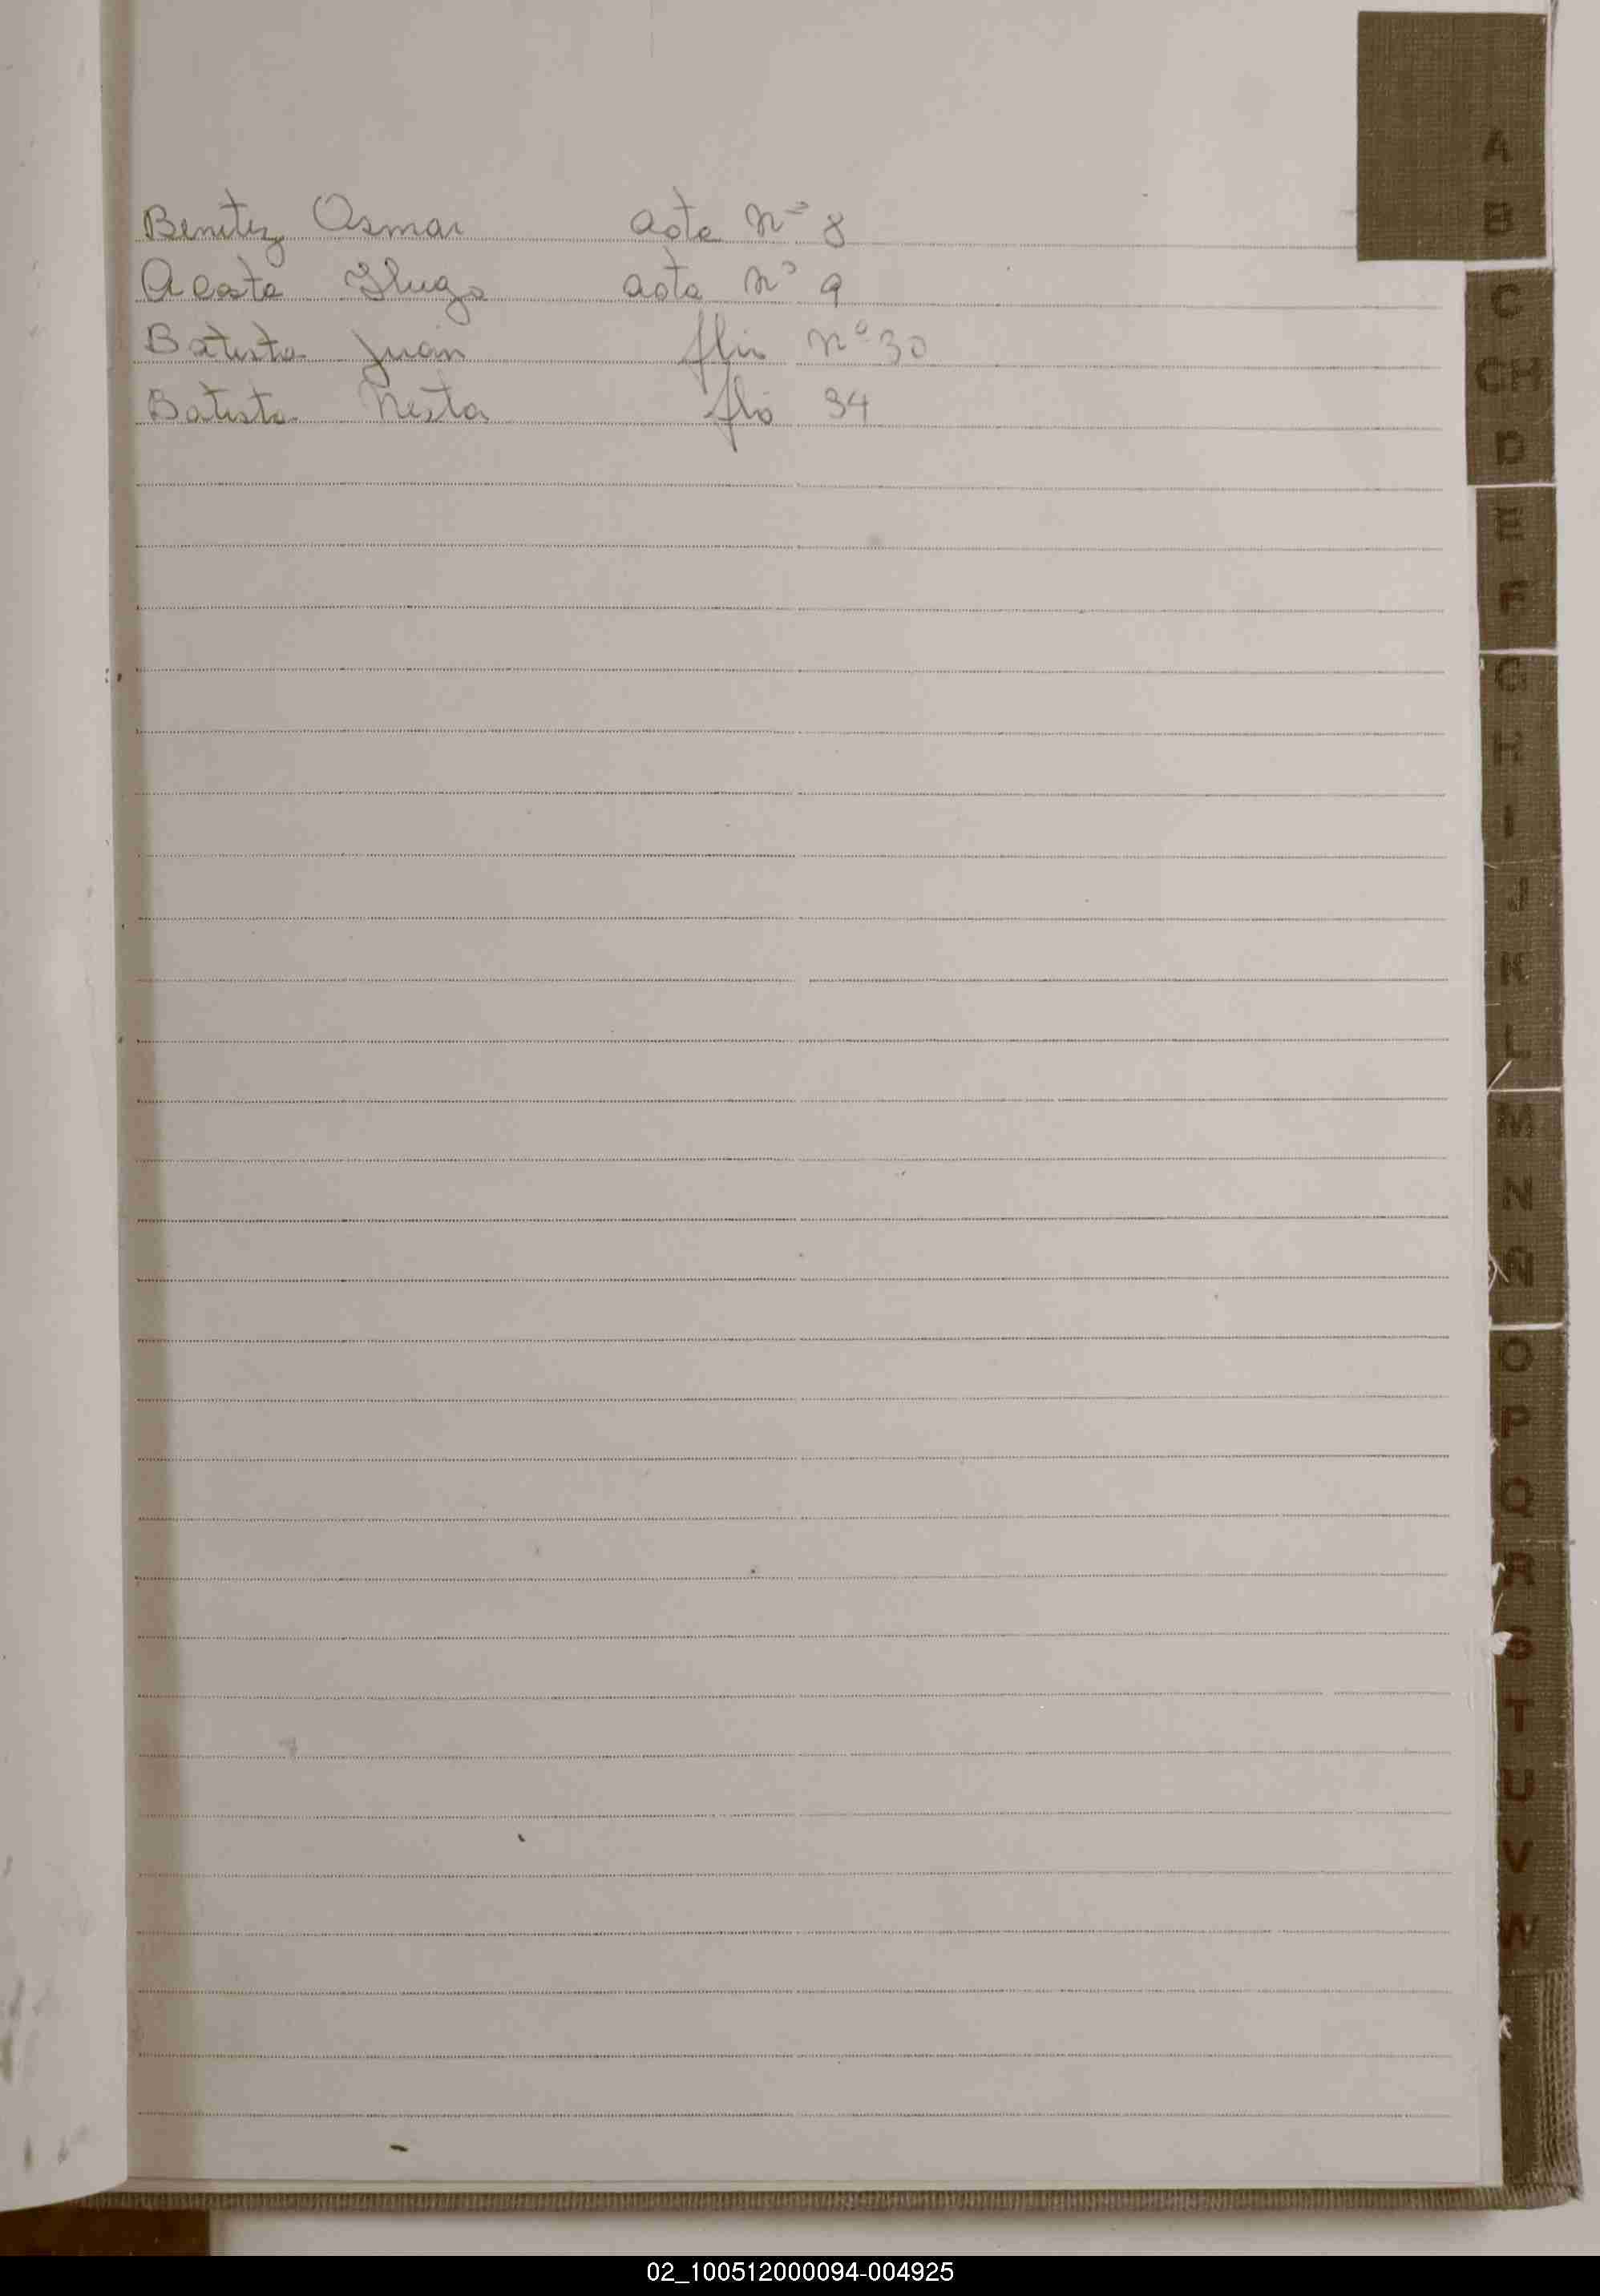 Benitez Osmar acta nº 8
Acosta Hugo acta nº 9
Batista Juan flio nº 30
Batista flio 34
A
B
C
CH
D
E
F
G
H
I
J
K
L
M
N
Ñ
O
P
Q
R
S
T
U
V
W
02_100512000094-004925